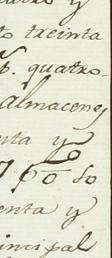 y
to treinta
quatro-
almacenes
nta y
760 so
enta y
incipal